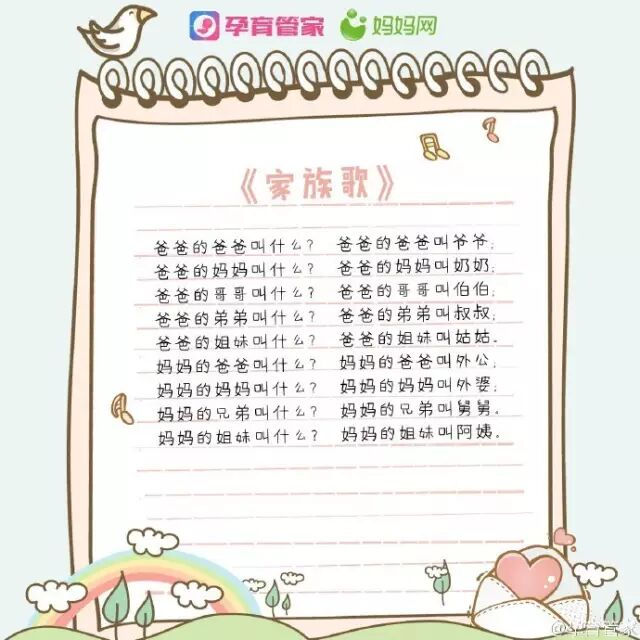 孕育管家 妈妈网
《家族歌》
爸爸的爸爸叫什么？ 爸爸的爸爸叫爷爷；
爸爸的妈妈叫什么？ 爸爸的妈妈叫奶奶；
爸爸的哥哥叫什么？ 爸爸的哥哥叫伯伯；
爸爸的弟弟叫什么？ 爸爸的弟弟叫叔叔；
爸爸的姐妹叫什么？ 爸爸的姐妹叫姑姑。
妈妈的爸爸叫什么？ 妈妈的爸爸叫外公；
妈妈的妈妈叫什么？ 妈妈的妈妈叫外婆；
妈妈的兄弟叫什么？ 妈妈的兄弟叫舅舅。
妈妈的姐妹叫什么？ 妈妈的姐妹叫阿姨。
@孕育管家